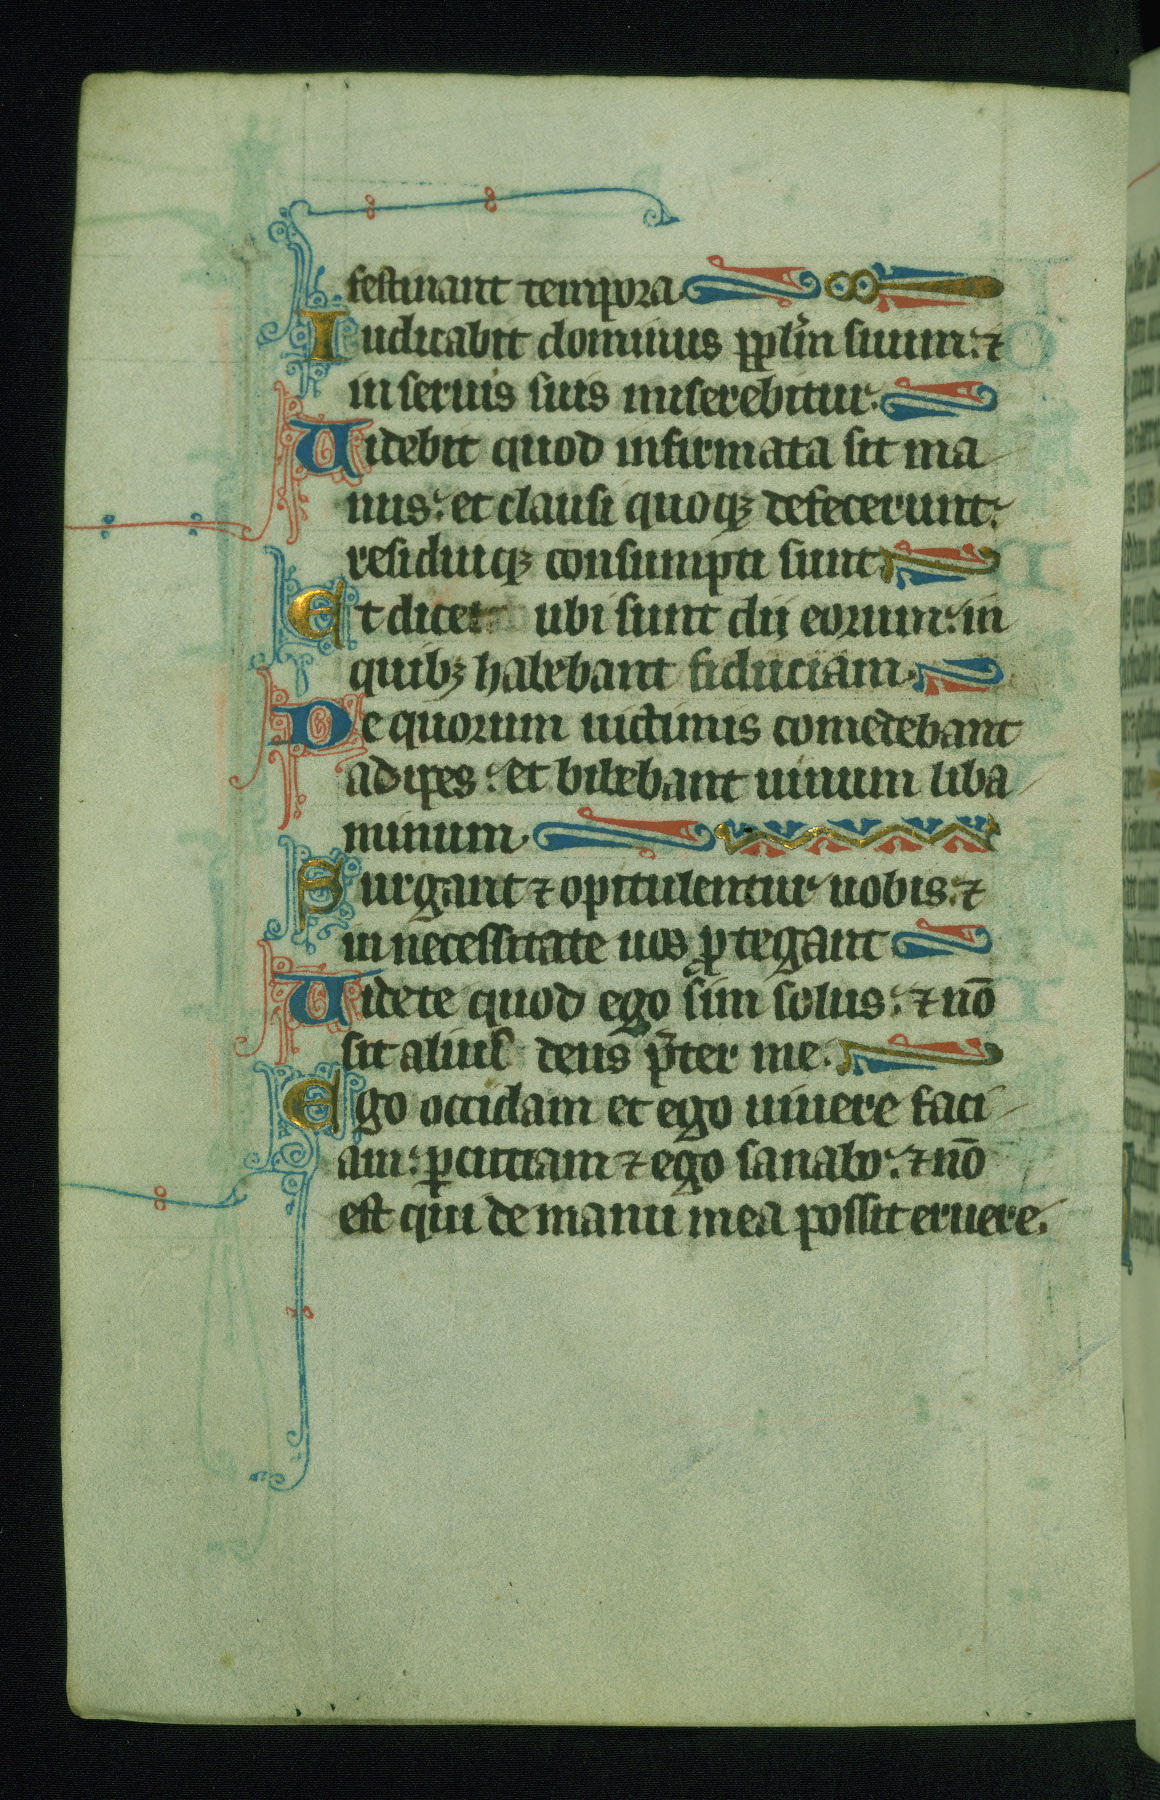 festinant tempora
Iudicabit dominus pplm̄ suum: ⁊
in seruis suis miserebitur.
Uidebit quod infirmata sit ma
nus: et clausi quoqꝫ defecerunt.
residuiqꝫ consumpti sunt
Et dicet ubi sunt dij eorum: in
quibꝫ habebant fiduciam.
De quorum uictimis comedebant
adipes: et bibebant uinum liba
minum.
Surgant ⁊ opitulentur uobis: ⁊
in necessitate uos ꝓtegant
Uidete quod ego sim solus: ⁊ nō
sit alius deus p̄ter me.
Ego occidam et ego uiuere faci
am: ꝑcutiam ⁊ ego sanabo: ⁊ nō
est qui de manu mea possit eruere.